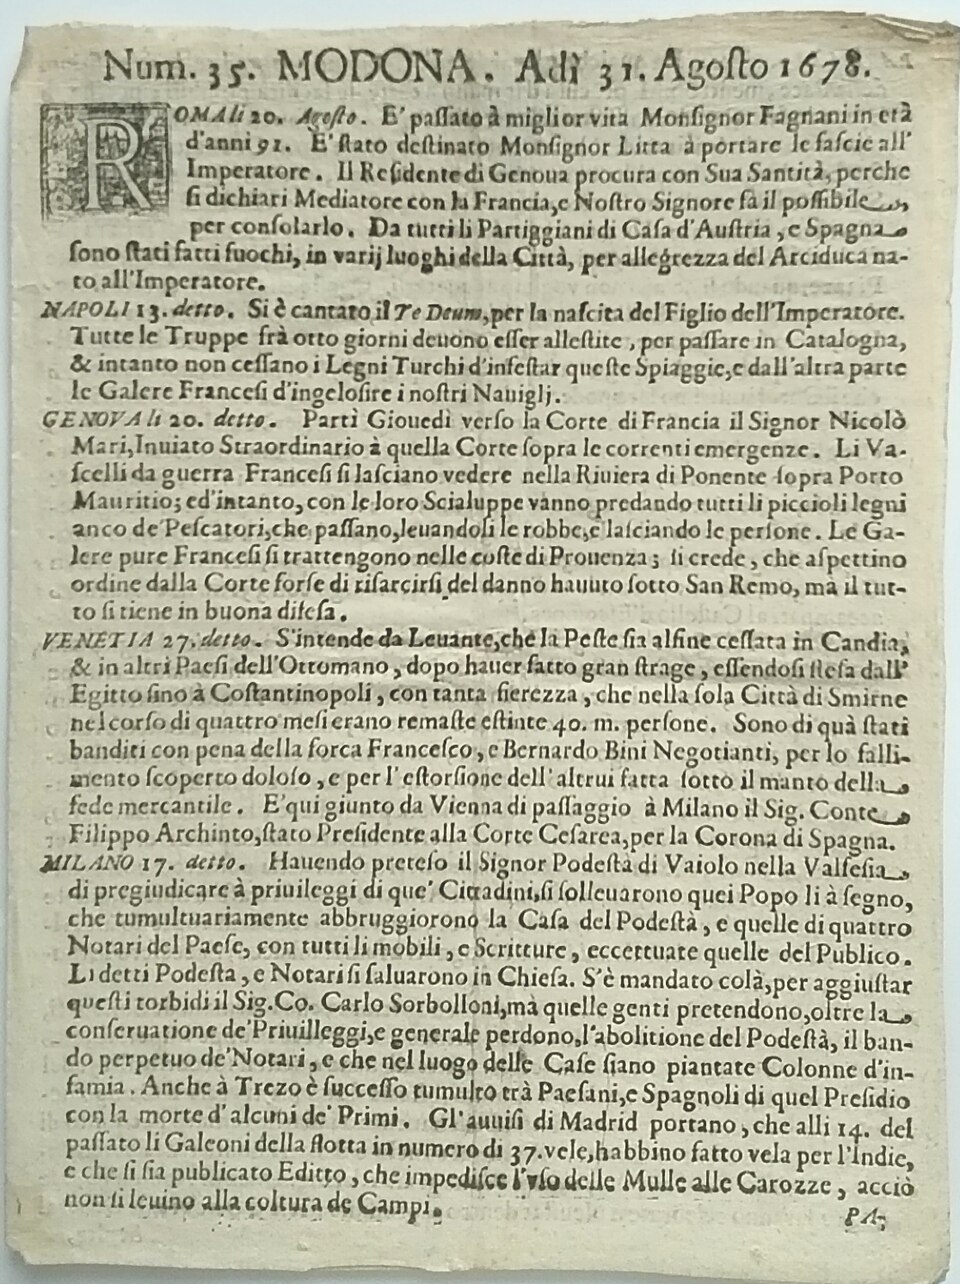 Num. 35. MODONA. Adì 31. Agoſto 1678.
ROMA li 20. Agoſto. E' paſſato à miglior vita Monſignor Fagnani in età
d'anni 91. E' ſtato deſtinato Monſignor Litta à portare le faſcie all'
Imperatore. Il Reſidente di Genoua procura con Sua Santità, perche
ſi dichiari Mediatore con la Francia, e Noſtro Signore fà il poſſibile
per conſolarlo. Da tutti li Partiggiani di Caſa d'Auſtria, e Spagna
ſono ſtati fatti fuochi, in varij luoghi della Città, per allegrezza del Arciduca na-
to all'Imperatore.
NAPOLI 13. detto. Si è cantato il Te Deum, per la naſcita del Figlio dell'Imperatore.
Tutte le Truppe frà otto giorni deuono eſſer alleſtite, per paſſare in Catalogna,
& intanto non ceſſano i Legni Turchi d'infeſtar queſte Spiaggie, e dall'altra parte
le Galere Franceſi d'ingeloſire i noſtri Nauiglj.
GENOVA li 20. detto. Partì Giouedì verſo la Corte di Francia il Signor Nicolò
Mari, Inuiato Straordinario à quella Corte ſopra le correnti emergenze. Li Va-
ſcelli da guerra Franceſi ſi laſciano vedere nella Riuiera di Ponente ſopra Porto
Mauritio; ed'intanto, con le loro Scialuppe vanno predando tutti li piccioli legni
anco de' Peſcatori, che paſſano, leuandoſi le robbe, e laſciando le perſone. Le Ga-
lere pure Franceſi ſi trattengono nelle coſte di Prouenza; ſi crede, che aſpettino
ordine dalla Corte forſe di riſarcirſi del danno hauuto ſotto San Remo, mà il tut-
to ſi tiene in buona difeſa.
VENETIA 27. detto. S'intende da Leuante, che la Peſte ſia alfine ceſſata in Candia,
& in altri Paeſi dell'Ottomano, dopo hauer fatto gran ſtrage, eſſendoſi ſteſa dall'
Egitto ſino à Coſtantinopoli, con tanta fierezza, che nella ſola Città di Smirne
nel corſo di quattro meſi erano remaſte eſtinte 40. m. perſone. Sono di quà ſtati
banditi con pena della forca Franceſco, e Bernardo Bini Negotianti, per lo falli-
mento ſcoperto doloſo, e per l'eſtorſione dell'altrui fatta ſotto il manto della
fede mercantile. E' qui giunto da Vienna di paſſaggio à Milano il Sig. Conte
Filippo Archinto, ſtato Preſidente alla Corte Ceſarea, per la Corona di Spagna.
MILANO 17. detto. Hauendo preteſo il Signor Podeſtà di Vaiolo nella Valſeſia
di pregiudicare à priuileggi di que' Cittadini, ſi ſolleuarono quei Popo li à ſegno,
che tumultuariamente abbruggiorono la Caſa del Podeſtà, e quelle di quattro
Notari del Paeſe, con tutti li mobili, e Scritture, eccettuate quelle del Publico.
Li detti Podeſta, e Notari ſi ſaluarono in Chieſa. S'è mandato colà, per aggiuſtar
queſti torbidi il Sig. Co. Carlo Sorbolloni, mà quelle genti pretendono, oltre la
conſeruatione de' Priuilleggi, e generale perdono, l'abolitione del Podeſtà, il ban-
do perpetuo de' Notari, e che nel luogo delle Caſe ſiano piantate Colonne d'in-
famia. Anche à Trezo è ſucceſſo tumulto trà Paeſani, e Spagnoli di quel Preſidio
con la morte d'alcuni de' Primi. Gl'auuiſi di Madrid portano, che alli 14. del
paſſato li Galeoni della flotta in numero di 37. vele, habbino fatto vela per l'Indie,
e che ſi ſia publicato Editto, che impediſce l'vſo delle Mulle alle Carozze, acciò
non ſi leuino alla coltura de Campi.
PA-